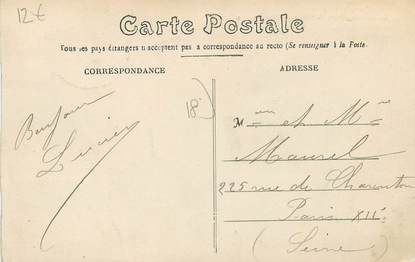 12€
Carte Postale
Tous les pays étrangers n'acceptent pas la correspondance au recto (Se renseigner à la Poste.
CORRESPONDANCE
ADRESSE
18
Bonjour
Lucien
M me et Mr
Maurel
225 rue de Charenton
Paris XIIe
(Seine)